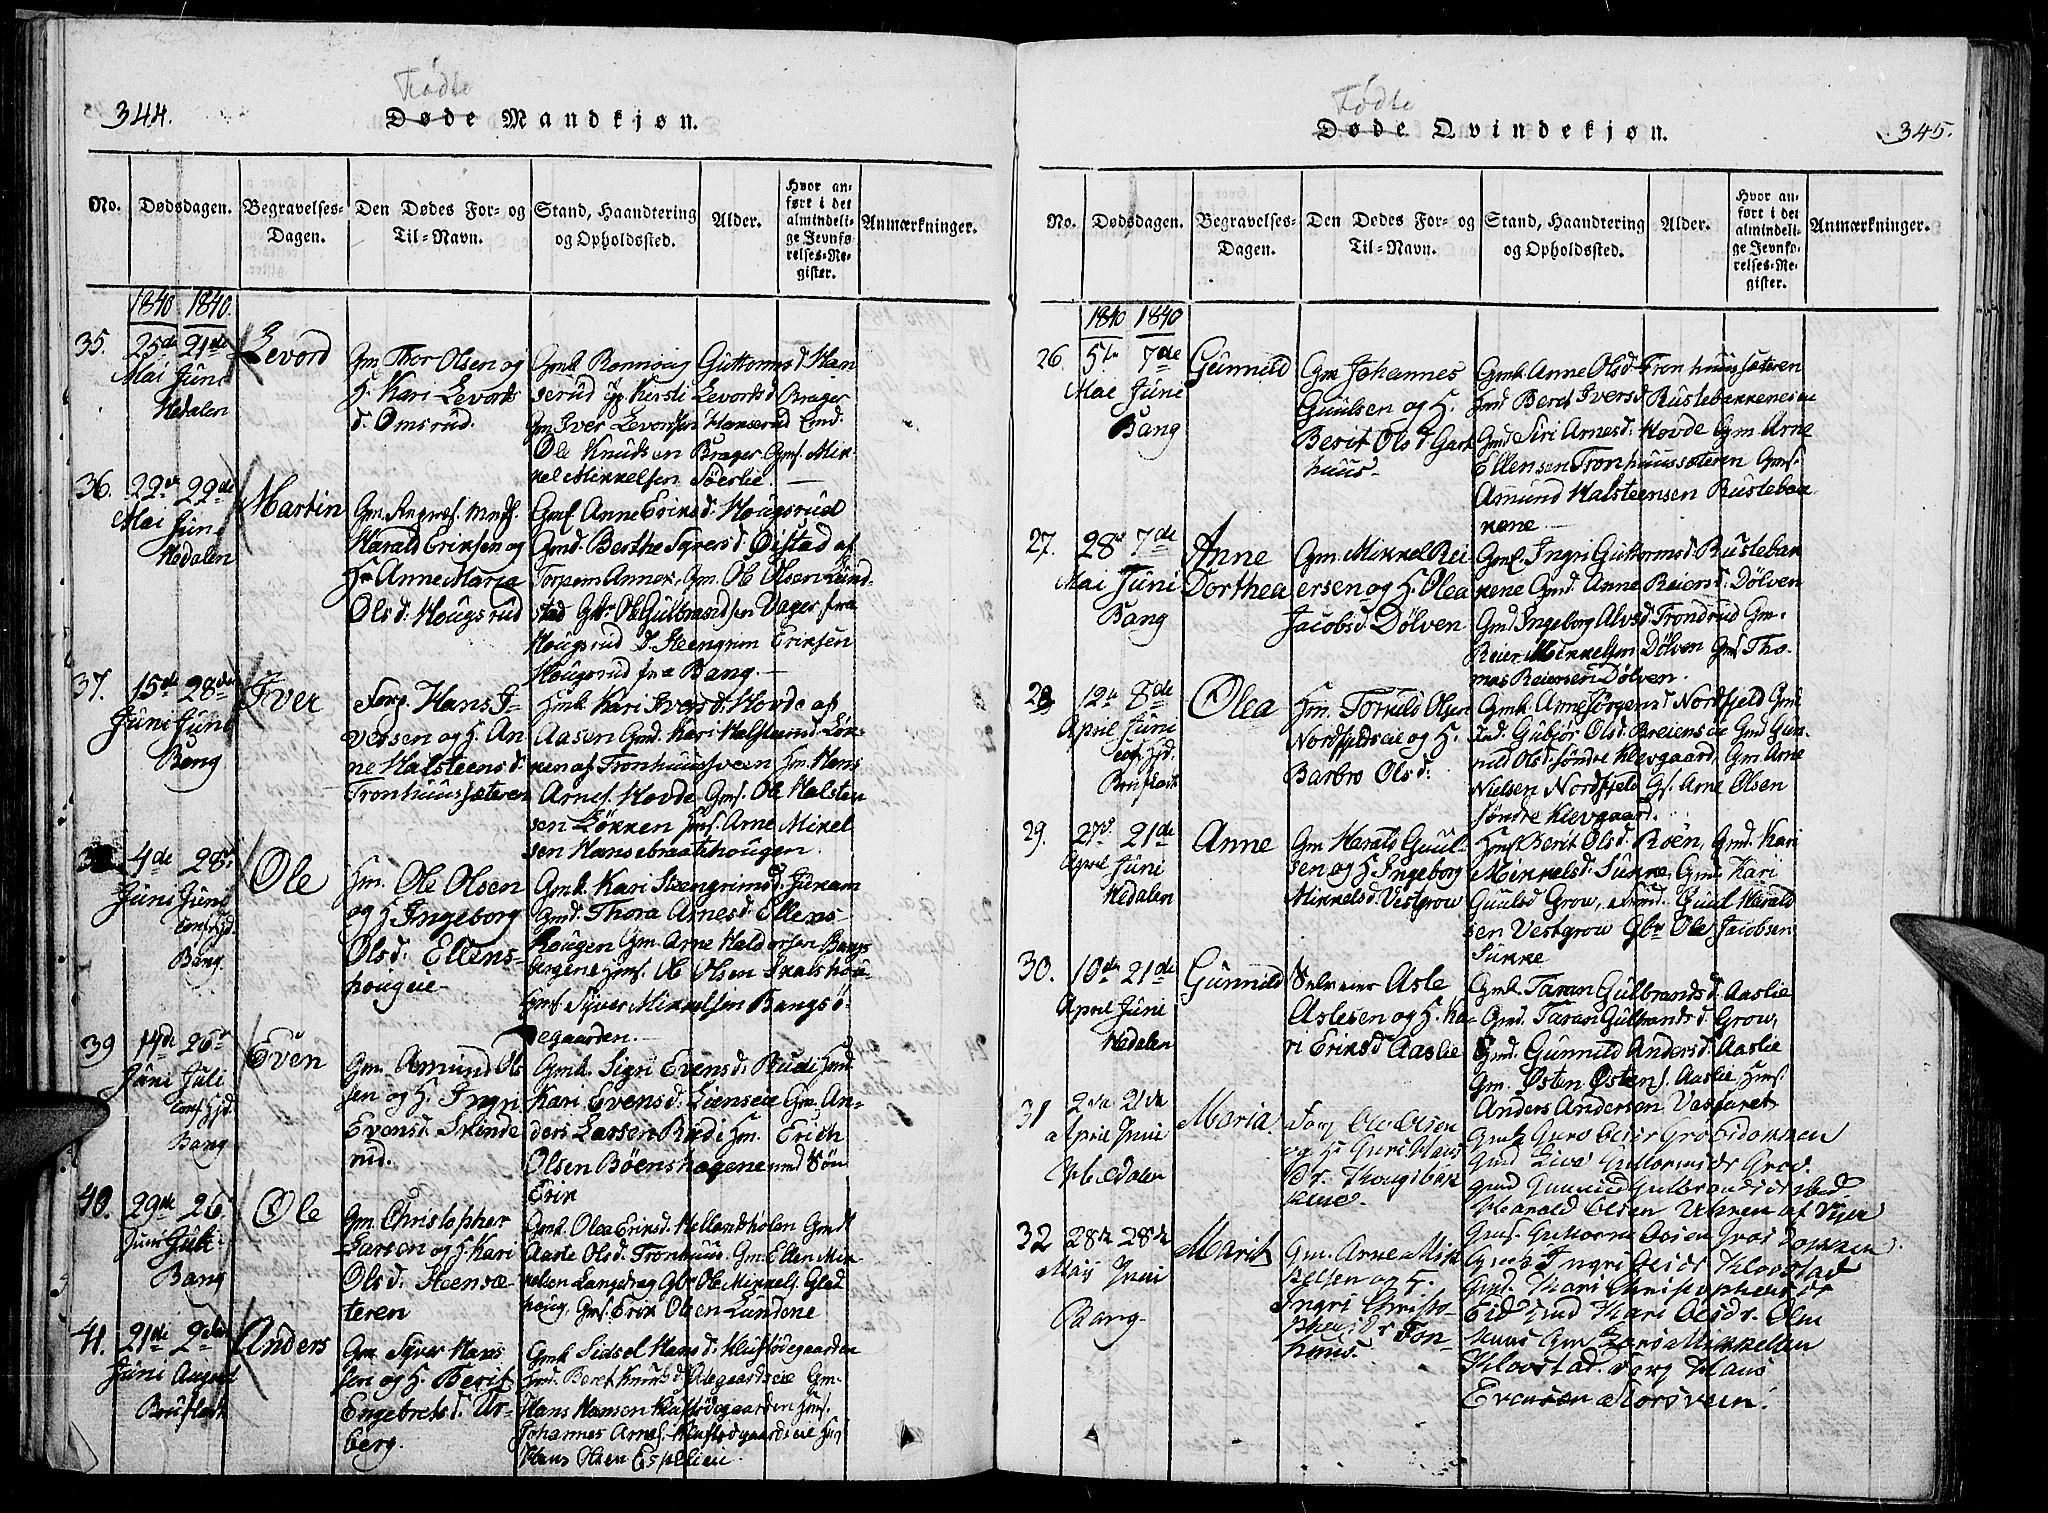 344.
Fødte
Døde Mandkjøn.
No.
Dødsdagen.
Begravelses-
Dagen.
Den Dødes For- og
Til-Navn.
Stand, Haandtering
og Opholdssted.
Alder.
Hvor an-
ført i det
almindeli-
ge Jevnfø-
relses-Re-
gister.
Anmærkninger.
1840 1840.
35. 25de 21de
Mai Juni
Hedalen
Levord
Gm Thor Olsen og
H. Kari Levords
d. Omsrud.
Gmk Rönnoug Guttormsd Han
serud Kirsti Levordsd Brager
Gm Iver Levordsen Hanserud Emd.
Ole Knudsen Brager. Gms. Mik
kel Mikkelsen Söerlie.
36. 22de 29de
Mai Juni
Hedalen
Martin
Harald Eriksen og
H. Anne Maria
Olsd. Hougsrud
Gmk Anne Eriksd. Hougsrud
Gmd. Berthe Syversd. Øistad af
Torpem Annex, Gm. Ole Olsen Lund-
stad Gbr Ole Gulbrandsen Vager, fra
Hougsrud S. Steengrim Eriksen
Hougsrud fra Bang.
37. 15de 28de
Juni Juni
Bang
Iver
Forp. Hans I-
versen og H. An-
ne Halsteensd.
Tronhuussæteren
Hmk Kari Iversd. Hovde af
Aasen Gmd. Kari Halsteensd. Løk-
ken af Tronhuussveen Hm. Hans
Arnes. Hovde, Gms. Ole Halsten
sen Løkken Hms. Arne Mikel
sen Hansebraatehougen.
38 4de 28de
Juni Juni
Bang.
Ole
Hm. Ole Olsen
og H. Ingeborg
Olsd. Ellens-
hougeie
Gmk. Kari Steengrimsd. Juram
Gmd. Thora Arnesd. Ellens-
hougen Gm. Arne Haldorsen Bangs
bergene Hms. Ole Olsen Skalshou-
Hms Syver Mikkelsen Bangsö-
degaarden.
39 14de 26de
Juni Juli
Bang
Even
Gm. Amund Ols
sen og H. Ingri
Evensd. Skinde
rud.
Gmk. Sigri Evensd. Rudi Hmd.
Kari Evensd. Lienseie Gm. An-
ders Larsen Rudi Hm. Erich
Olsen Böenshagene und Sön
Erik
40. 29de 26
Juni Juli
Bang
Ole
Gm. Christopher
Larsen og H. Kari
Olsd. Steensæ-
teren
Gmk. Olea Eriksd. Hellandholen Gmd.
Aaste Olsd. Tronhuus. Gm. Ellen Mik-
kelsen Langdrag Gbr Ole Mikkels. Glad
houg, Gms. Erik Olsen Lundene
41. 21de 2den
Juni August
Bruflaat
Anders
Gm. Syver Hans
sen og H. Berit
Engebretsd. Ur-
berg.
Gmk Sidsel Hansd. Kluftödegaarden
Hmd. Beret Knudsd Ølegaardseie Gm.
Hans Hansen Kluftödegaarden Hms.
Johannes Arnes. Kluftödegaardseie
Hans Olsen Espelien
345.
Fødte
Døde Qvindekjøn.
No.
Dødsdagen.
Begravelses-
Dagen.
Den Dødes For- og
Til-Navn.
Stand, Haandtering
og Opholdssted.
Alder.
Hvor an-
ført i det
almindeli-
ge Jevnfø-
relses-Re-
gister.
Anmærkninger.
1840 1840
26. 5te 7de
Mai Juni
Bang
Gunnild
Gm Johannes
Guulsen og H.
Berit Olsd Gart
huus
Gmk. Anne Olsd. Tron huussæteren
Hmd Beret Iversd. Rustebakkeneeie
Gmd Siri Arnesd. Hovde Gm. Arne
Ellensen Tronhuussæteren Gms.
Amund Halsteensen Rustebak
kene
27. 28de 7de
Mai Juni
Bang
Anne
Dorthea
Gm. Mikkel Rei
ersen og H. Olea
Jacobsd Dölven
Gmk. Ingri Guttormsd. Rustebak
kene Gmd. Anne Reiersd. Dölven
Gmd Ingeborg Alvsd. Trondrud Gm.
Reier Mikkelsen Dölven Gms Tho-
mas Reiersen Dölven.
28 12te 8de
April Juni
Bruflaat
Olea
Hm. Torkild Olsen
Nordfjeldseie og H.
Barbro Olsd.
Gmk Anne Jörgensd Nordfjeld Gm
Ind. Gubjör Olsd Breienseie Gmd Gun-
nild Olsd. söndre Klevgaard, Gm. Arne
Nielsen Nordfjeld Gs. Arne Olsen
söndre Klevgaard.
29. 27de 21de
April Juni
Hedalen
Anne
Gm Harald Guul-
sen og H. Ingeborg
Mikkelsd. Vestgrow
Hmk Berit Olsd. Roën, Gmd. Kari
Mikkelsd. Sukke, Gmd Kari
Guulsd Grow, Guul Harald
sen Vestgrow Gbr Ole Jacobsen
Sukke
30. 10de 21de
April Juni
Hedalen
Gunnild
Selveier Asle
Aslesen og H. Ka-
ri Eriksd Aaslie
Gmk. Taran Gulbrandsd. Aaslie
Gmd. Taran Gulbrandsd Grow,
Gmd. Gunnild Andersd. Aaslie
Gm. Østen Østens. Aaslie, Hms.
Anders Andersen Vasfaret
31 2den 21de
April Juni
Hedalen
Maria
Forp Ole Olsen
og H. Guri Hans
Dr. Hougsbak
kene
Gmk Guro Olsdr Grobsdokken
Gmd Live Guttormsdr Grov
Gmd Gunnild Gulbrandsdr ibid
Harald Olsen Uhnen af Vejer
Gms. Guttorm Olsen Grobsdokken.
32 28de 28de
Maij Juni
Bang
Marit
Gm. Arne Mik
kelsen og H.
Ingri Christo-
phersdr Ton-
huus.
Gmk Ingri Olsdr Klovstad
Gmd. Kari Christophersdr
Eid Gmd Kari Olsdr. Olm
huus Gm Lars Mikkelsen
Klovstad. Forp Hans
Evensen Morsveen.